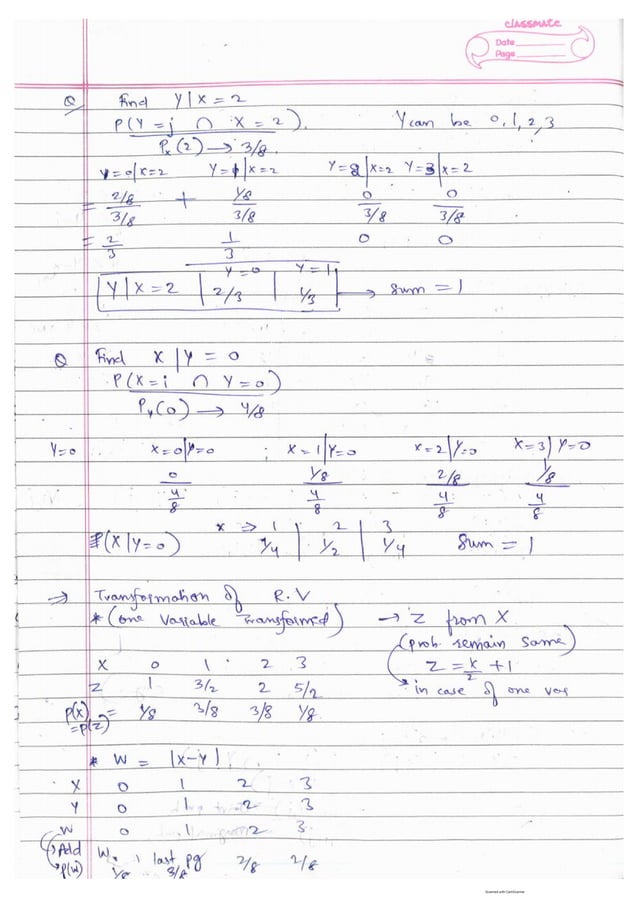 classmate
Date
Page
Q Find Y | X = 2
P(Y = j ∩ X = 2). Y can be 0, 1, 2, 3
Px(2) → 3/8.
Y = 0 | X = 2 Y = 1 | X = 2 Y = 2 | X = 2 Y = 3 | X = 2
= 2/8 + 1/8 0 0
3/8 3/8 3/8 3/8
= 2/3 1/3 0 0
Y = 0 Y = 1
Y | X = 2 | 2/3 | 1/3 → Sum = 1
Q Find X | Y = 0
P(X = i ∩ Y = 0)
Py(0) → 4/8
Y = 0 X = 0 | Y = 0 ; X = 1 | Y = 0 X = 2 | Y = 0 X = 3 | Y = 0
0 1/8 2/8 1/8
4/8 4/8 4/8 4/8
x ⇒ 1 2 3
P(X | Y = 0) 1/4 | 1/2 | 1/4 Sum = 1
→ Transformation of R.V
* (One Variable Transformed) → Z from X
(prob. remain same)
X 0 1 2 3 Z = x/2 + 1
Z 1 3/2 2 5/2 * in case of one var
P(X) = P(Z) = 1/8 3/8 3/8 1/8
* W = |X - Y|
X 0 1 2 3
Y 0 1 2 3
W 0 1 2 3
Add W. last pg
P(W) 1/8 3/8 2/8 2/8
Scanned with CamScanner